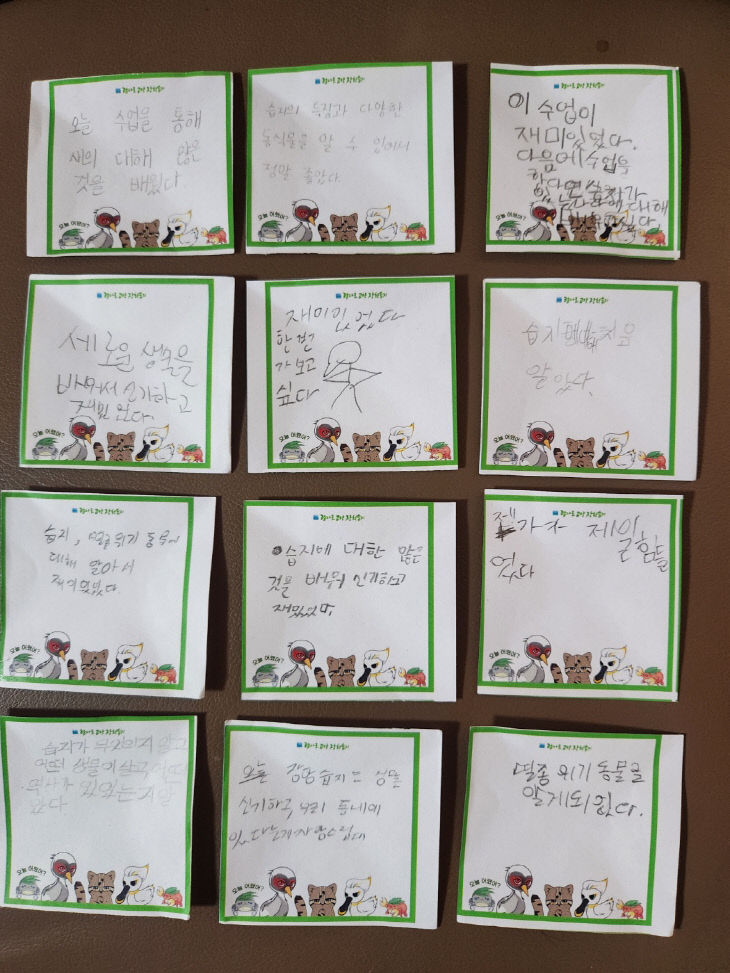 오늘 수업을 통해
새의 대해 많은
것을 배웠다.
오늘 어땠어?
습지의 특징과 다양한
동식물을 알 수 있어서
정말 좋았다.
이 수업이
재미있었다.
다음에 수업을
대해
오늘 어땠어?
세로운 생물을
배워서 신기하고
오늘 어땠어?
재미있었다
한번
가보고
싶다
오늘 어땠어?
습지
알았다.
오늘 어땠어?
습지, 멸종위기 동물에
대해 알아서
재미있었다.
오늘 어땠어?
습지에 대한 많은
것을 배워 신기하고
재밌었다.
오늘 어땠어?
제일 힘들
었다
오늘 어땠어?
습지가 무엇인지 알고
어떤 생물이 살고 어떤
역사가 있었는지 알
았다
오늘 어땠어?
오늘 강남습지는 정말
신기하고, 우리 동네에
오늘 어땠어?
멸종 위기 동물을
알게되었다.
오늘 어땠어?